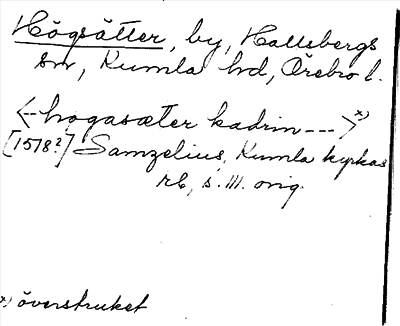 Högsätter, by, Hallsbergs
sn, Kumla hd, Örebro l.
<--hogasæter kadrin---> x)
[1518?] Samzelius, Kumla kyrkas
rb, s. III. orig.
x) överstruket